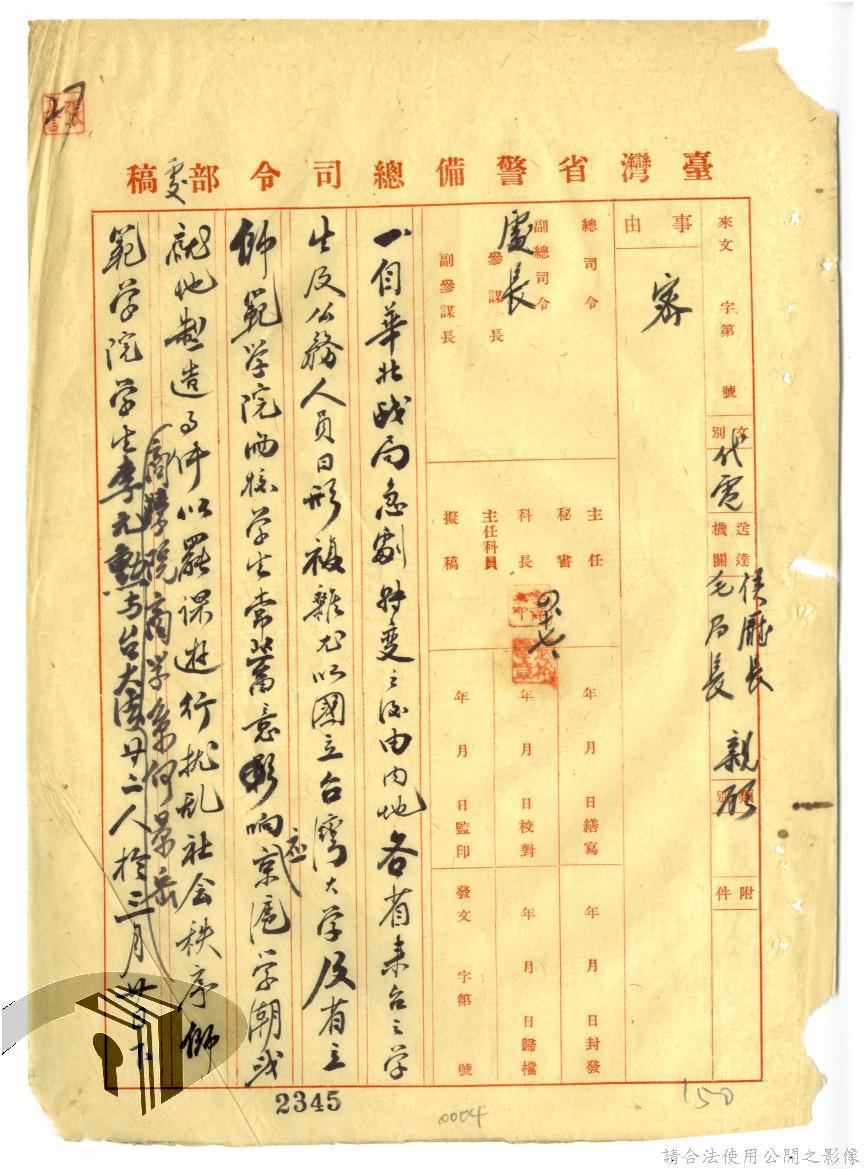 臺灣省警備總司令部處稿
來文 字第 號
文別 代電
送達機關 侯廳長 毛局長 親啟
類別
附件
事由
密
總司令
副總司令
參謀長
副參謀長
處長
主任
秘書
科長
主任科員
擬稿
年 月 日繕寫
年 月 日校對
年 月 日監印
年 月 日封發
年 月 日歸檔
發文 字第 號
一、自華北戰局急劇轉變之後由內地各省来台之学
生及公務人员日形複雜尤以國立台灣大学及省立
師範学院两校学生常蓄意影响应京滬学潮或
就地製造事件以罷课遊行扰乱社会秩序師
商学院商学系何景岳
範学院学生李元勳与台大法廿二人於三月廿日下
2345
0004
150
請合法使用公開之影像